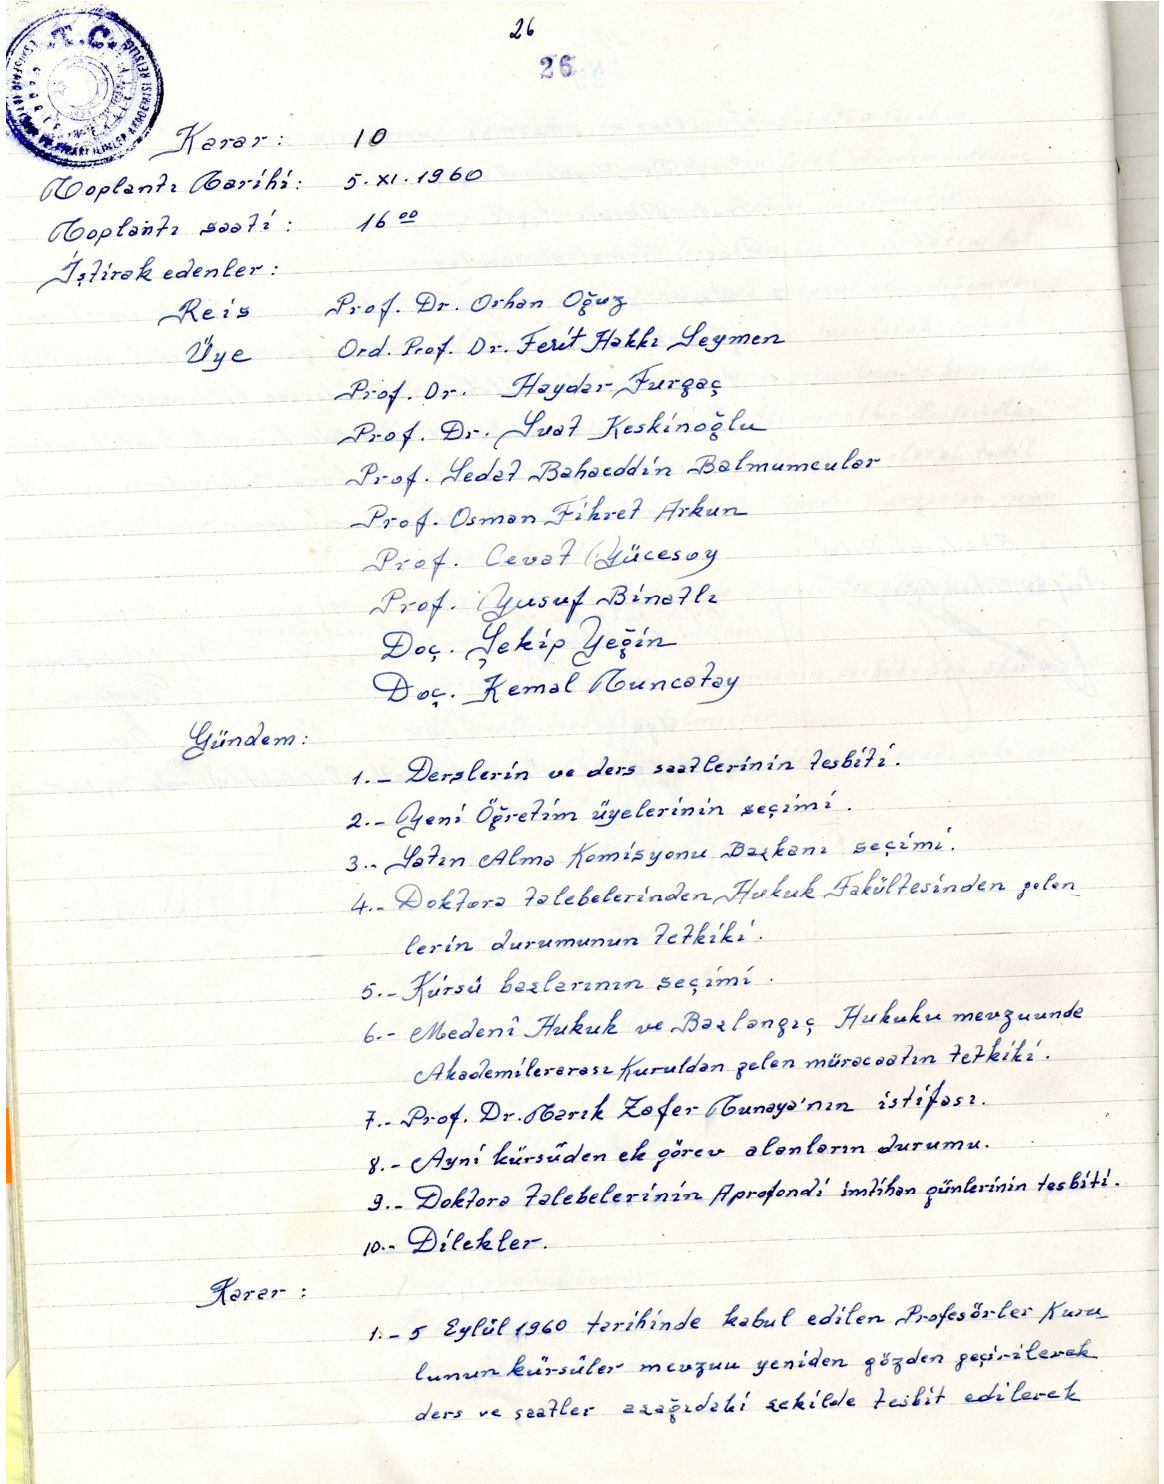 26
26
T.C.
Karar: 10
Toplantı Tarihi: 5.XI.1960
Toplantı saati: 16⁰⁰
İştirak edenler:
Reis Prof. Dr. Orhan Oğuz
Üye Ord. Prof. Dr. Ferit Hakkı Seymen
Prof. Dr. Haydar Furgaç
Prof. Dr. Suat Keskinoğlu
Prof. Sedat Bahaeddin Balmumcular
Prof. Osman Fikret Arkun
Prof. Cevat Yücesoy
Prof. Yusuf Binatlı
Doç. Şekip Yeğin
Doç. Kemal Tuncatay
Gündem:
1.- Derslerin ve ders saatlerinin tesbiti.
2.- Yeni Öğretim üyelerinin seçimi.
3.- Satın Alma Komisyonu Başkanı seçimi.
4.- Doktora talebelerinden Hukuk Fakültesinden gelen
lerin durumunun tetkiki.
5.- Kürsü başlarının seçimi.
6.- Medenî Hukuk ve Başlangıç Hukuku mevzuunda
Akademilerarası Kuruldan gelen müracaatın tetkiki.
7.- Prof. Dr. Tarık Zafer Tunaya'nın istifası.
8.- Ayni kürsüden ek görev alanların durumu.
9.- Doktora talebelerinin Aprofondi imtihan günlerinin tesbiti.
10.- Dilekler.
Karar:
1.- 5 Eylül 1960 tarihinde kabul edilen Profesörler Kuru
lunun kürsüler mevzuu yeniden gözden geçirilerek
ders ve saatler aşağıdaki şekilde tesbit edilerek